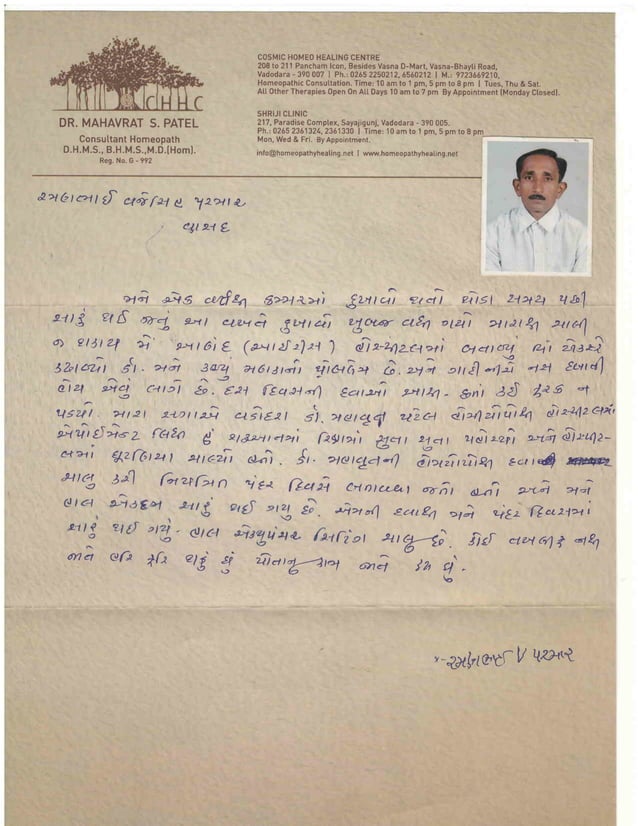 CHHC
DR. MAHAVRAT S. PATEL
Consultant Homeopath
D.H.M.S., B.H.M.S.,M.D.(Hom).
Reg. No. G - 992
COSMIC HOMEO HEALING CENTRE
208 to 211 Pancham Icon, Besides Vasna D-Mart, Vasna-Bhayli Road,
Vadodara - 390 007 | Ph.: 0265 2250212, 6560212 | M.: 9723669210,
Homeopathic Consultation. Time: 10 am to 1 pm, 5 pm to 8 pm | Tues, Thu & Sat.
All Other Therapies Open On All Days 10 am to 7 pm By Appointment (Monday Closed).
SHRIJI CLINIC
217, Paradise Complex, Sayajigunj, Vadodara - 390 005.
Ph.: 0265 2361324, 2361330 | Time: 10 am to 1 pm, 5 pm to 8 pm
Mon, Wed & Fri. By Appointment.
info@homeopathyhealing.net | www.homeopathyhealing.net
રમણભાઈ વજેસિંહ પરમાર
વાસદ
મને એક વર્ષથી કમ્મરમાં દુખાવો થતો થોડા સમય પછી
સારું થઈ જતું આ વખતે દુખાવો ખુબજ વધી ગયો મારાથી ચાલી
ન શકાય મેં આણંદ (આઈરીસ) હોસ્પીટલમાં બતાવ્યું ત્યાં એક્સરે
કઢાવ્યો ડૉ. મને કહ્યું મણકાનો પ્રોબલેમ છે. અને ગાદીનીચે નસ દબાતી
હોય એવું લાગે છે. દસ દિવસની દવાઓ આપી. છતાં કઈ ફરક ન
પડયો. મારા સગાએ વડોદરા ડૉ. મહાવ્રત પટેલ હોમીયોપેથી હોસ્પીટલમાં
એપોઈમેન્ટ લિધી હું શરૂઆતમાં રિક્ષામાં સુતા સુતા પહોચ્યો અને હોસ્પીટ-
લમાં ઘૂંટણિયા ચાલ્યો હતો. ડૉ. મહાવ્રતની હોમ્યોપેથી દવા
ચાલુ કરી નિયમિત પંદર દિવસે બતાવવા જતો હતો અને મને
હાલ એકદમ સારું થઈ ગયું છે. એમની દવાથી મને પંદર દિવસમાં
સારું થઈ ગયું. હાલ એક્યુપંચર સિટિંગ ચાલુ છે. કોઈ તખલીફ નથી
જાતે હરિ ફરિ શકું છું પોતાનું કામ જાતે કરૂ છું.
રમણભાઈ V પરમાર